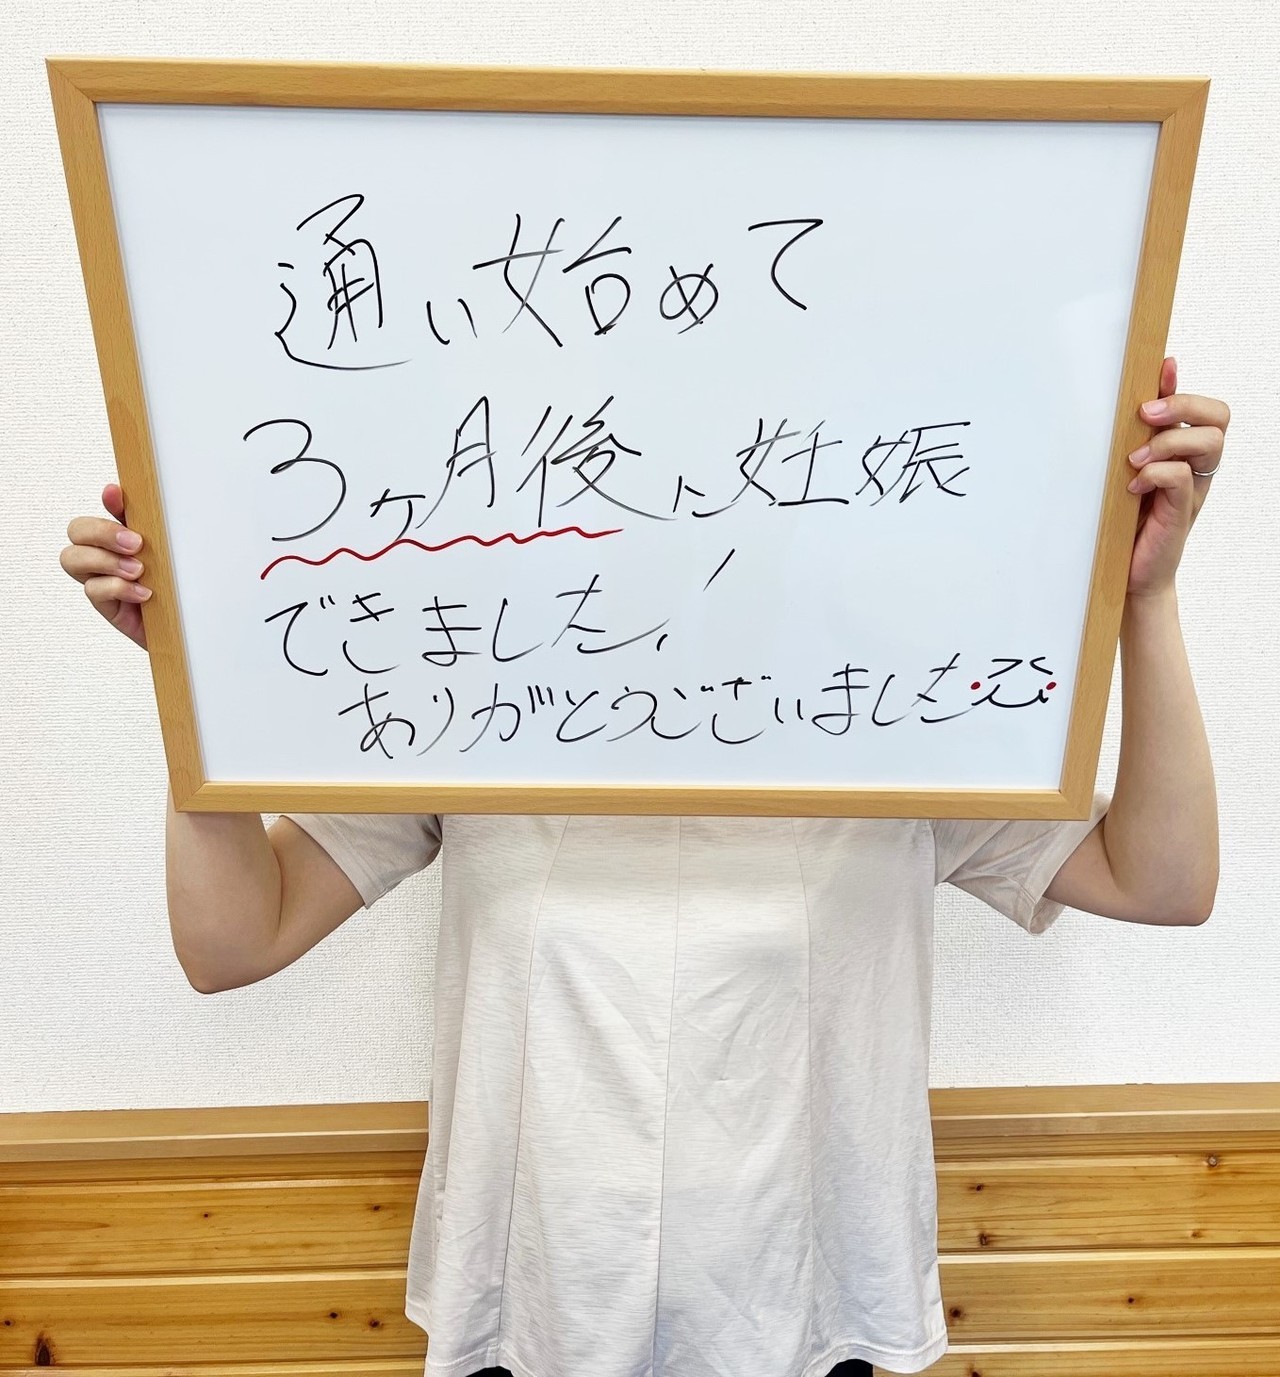 通い始めて
3ヶ月後に妊娠
できました!
ありがとうございました